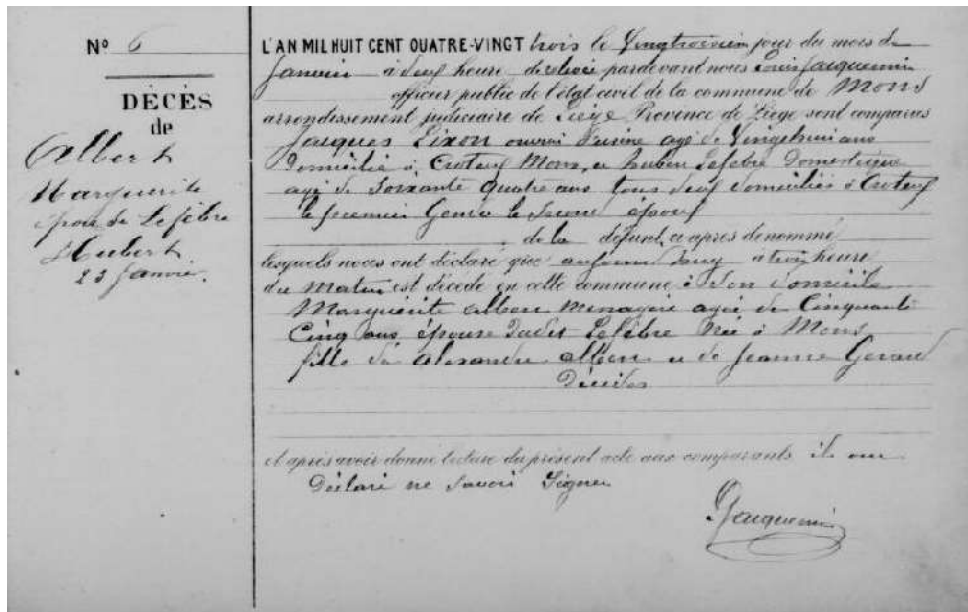 Nº 6
DÉCÈS
de
Albert
Marguerite
épouse Lefèbre
Hubert
23 Janvier.
L'AN MIL HUIT CENT QUATRE-VINGT trois le Vingtroisième jour du mois de
Janvier à deux heure de relevée pardevant nous Louis Jacquemin
officier public de l'état civil de la commune de Mons
arrondissement judiciaire de Liège Province de Liège sont comparus
Jacques Lixon ouvrier d'usine agé de Vingthuit ans
Domicilié à Crotteux Mons, et Hubert Lefèbre Domestique
agé de Soixante Quatre ans tous deux domiciliés à Crotteux
le premier Gendre le Second époux
de la défunt ci après dénommé
lesquels nous ont déclaré que aujourd'huy à trois heure
du Matin est décédé en cette commune à Son Domicile
Marguerite Albert Menagère agée de Cinquante
Cinq ans épouse dudit Lefèbre Née à Mons
fille de Alexandre Albert et de Jeanne Gerard
Décédés
et après avoir donné lecture du présent acte aux comparants ils ont
Déclaré ne Savoir Signer
Jacquemin